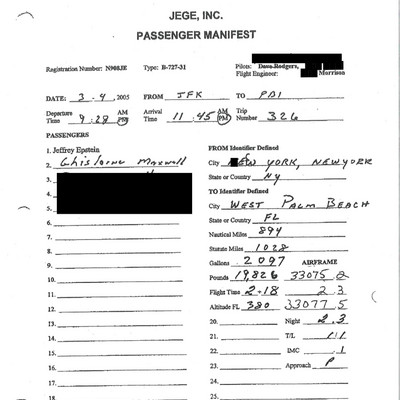 JEGE, INC.
PASSENGER MANIFEST
Registration Number: N908JE Type: B-727-31 Pilots: Dave Rodgers,
Flight Engineer: Morrison
DATE: 3-4, 2005 FROM JFK TO PBI
Departure Time 9:28 AM PM Arrival Time 11:45 AM PM Trip Number 326
PASSENGERS
1. Jeffrey Epstein FROM Identifier Defined
2. Ghislaine Maxwell City NEW YORK, NEWYORK
3. State or Country NY
4. TO Identifier Defined
5. City WEST PALM BEACH
6. State or Country FL
7. Nautical Miles 894
8. Statute Miles 1028
9. Gallons 2097 AIRFRAME
10. Pounds 19,826 33075 2
11. Flight Time 2+18 2 3
12. Altitude FL 380 33077 5
13. 20. Night 2.3
14. 21. T/L 1/1
15. 22. IMC .1
16. 23. Approach P
17. 24.
18. 25.